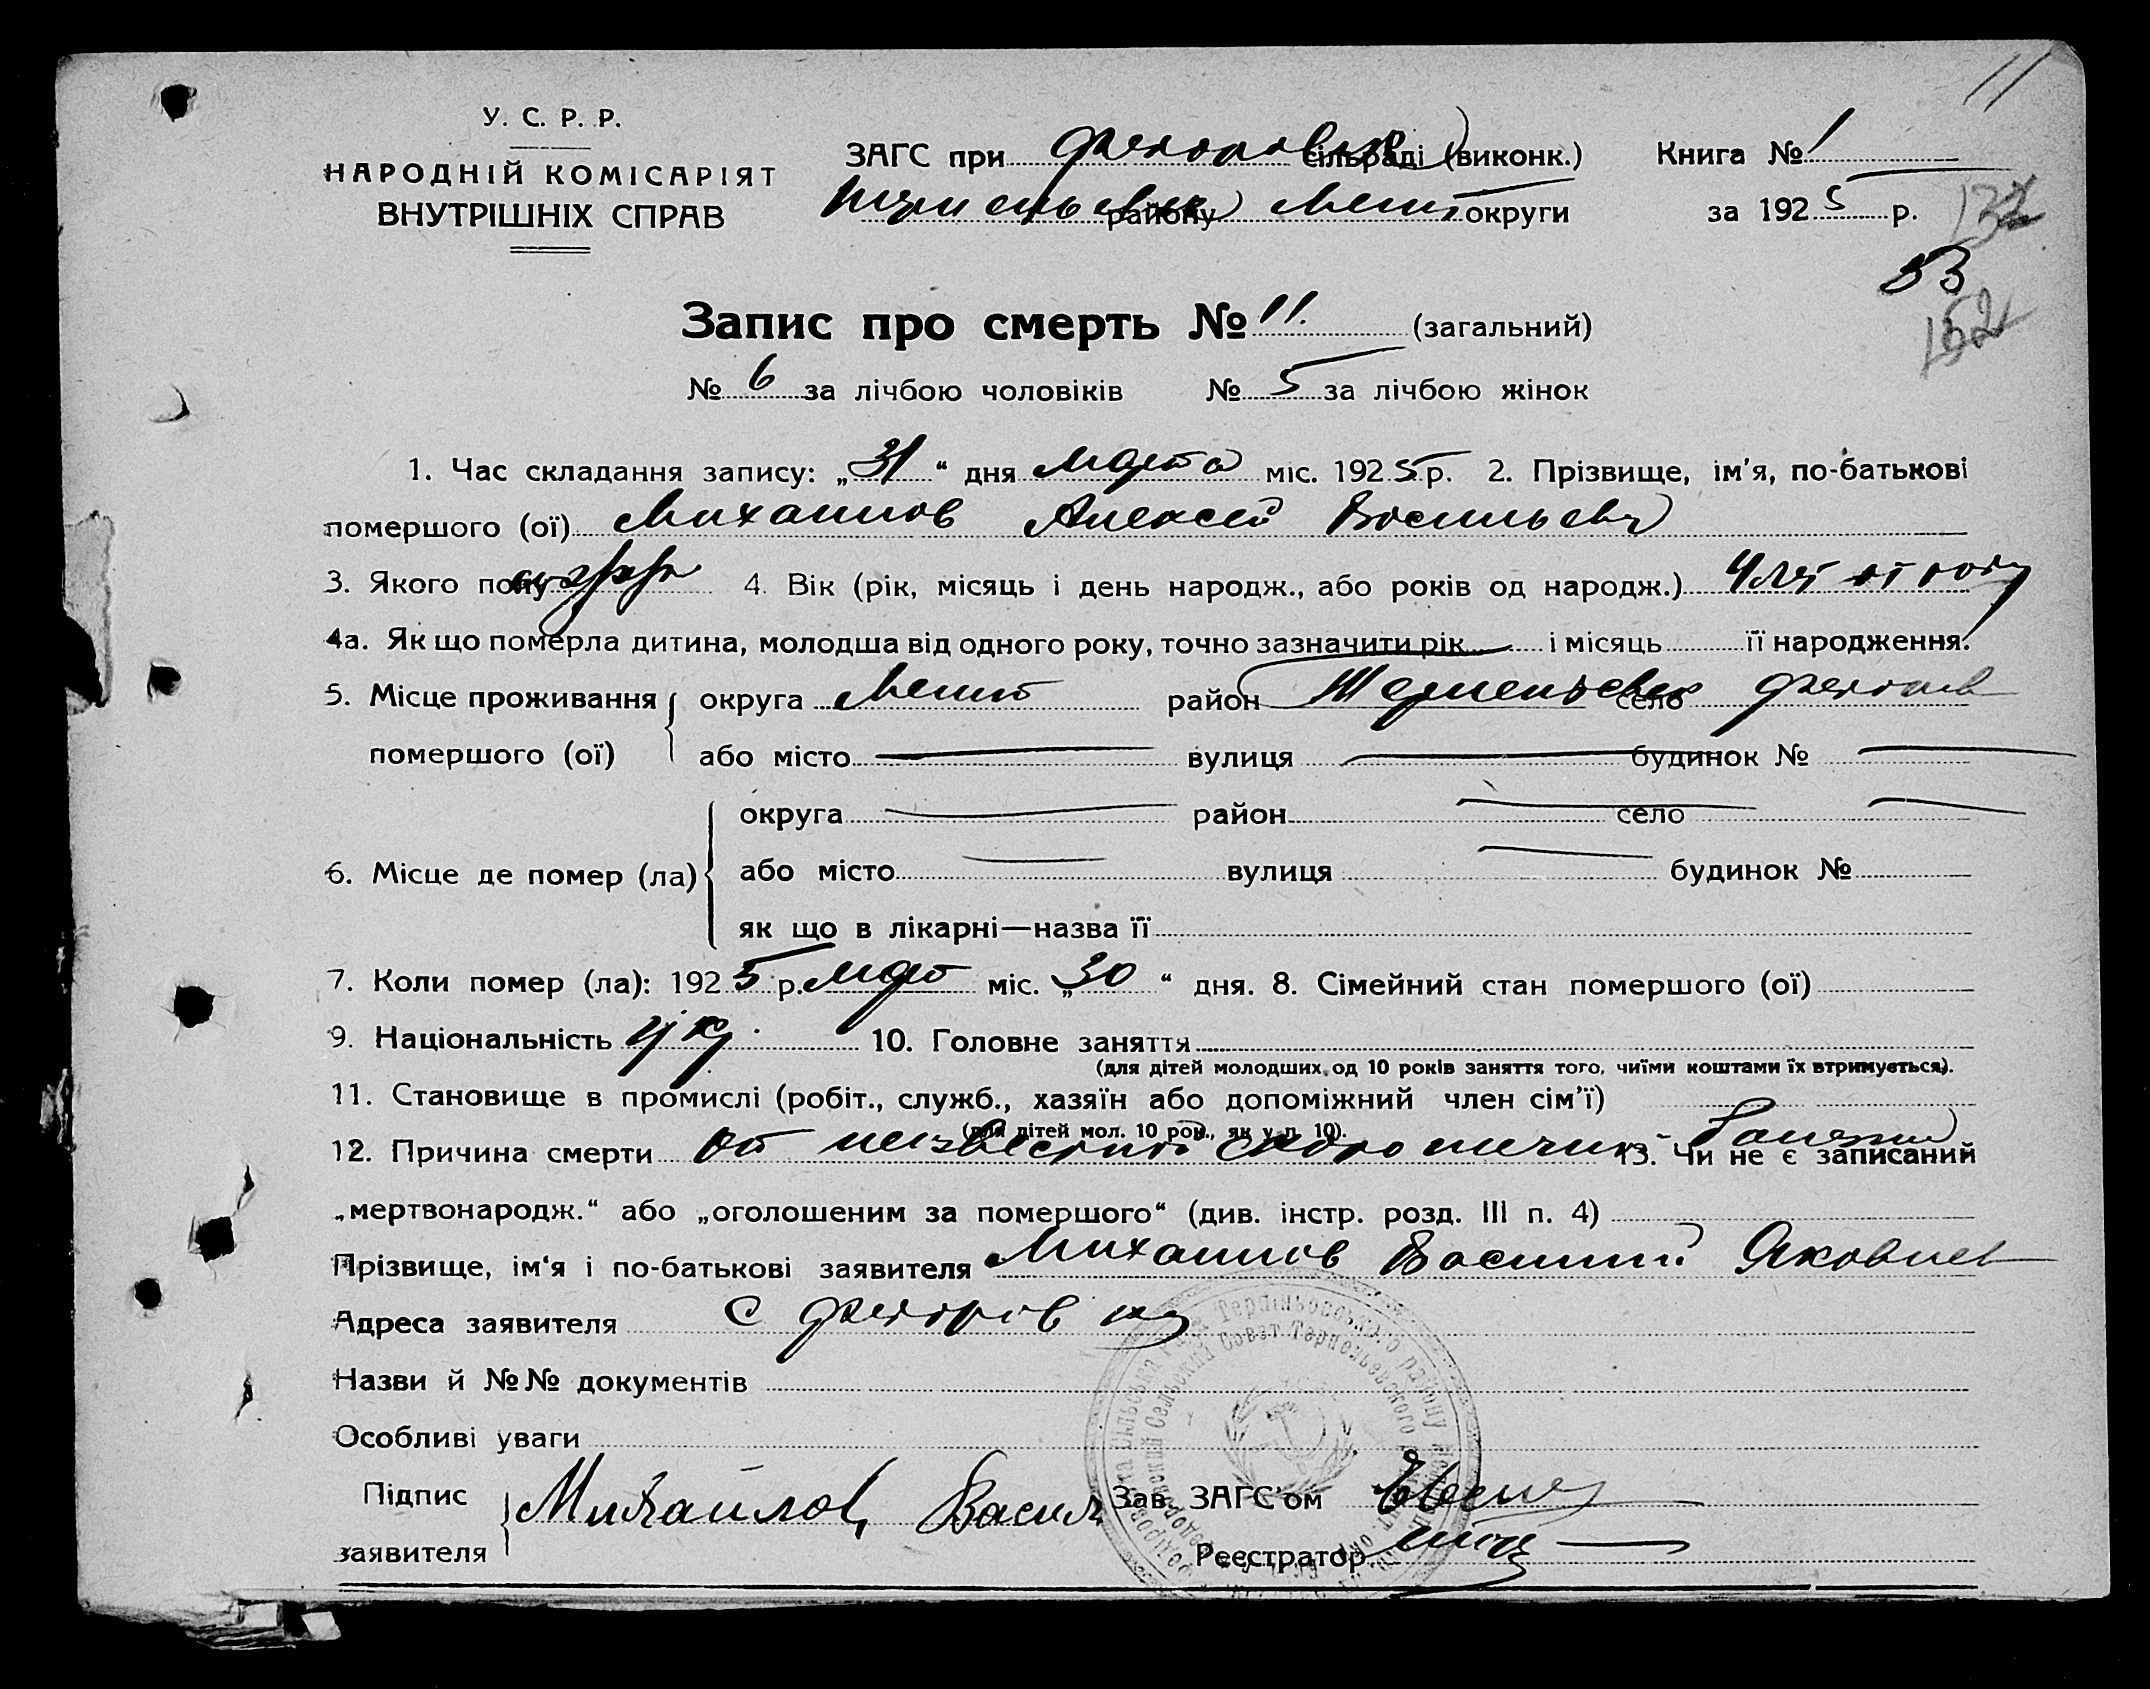 11
У. С. Р. Р.
НАРОДНІЙ КОМІСАРІЯТ
ВНУТРІШНІХ СПРАВ
ЗАГС при сільраді (виконк.)
району Мелит округи
Книга № 1
за 1925 р.
132
33
152
Запис про смерть № 11. (загальний)
№ 6 за лічбою чоловіків № 5 за лічбою жінок
1. Час складання запису: „31“ дня Марта міс. 1925 р. 2. Прізвище, ім'я, по-батькові
помершого (ої) Михаилов Алексей Васильевич
3. Якого полу 4. Вік (рік, місяць і день народж., або років од народж.) 4 лет от роду
4а. Як що померла дитина, молодша від одного року, точно зазначити рік і місяць її народження.
5. Місце проживання помершого (ої) округа Мелит район село
або місто вулиця будинок №
6. Місце де помер (ла) округа район село
або місто вулиця будинок №
як що в лікарні—назва її
7. Коли помер (ла): 1925 р. март міс. „30“ дня. 8. Сімейний стан помершого (ої)
9. Національність укр. 10. Головне заняття
(для дітей молодших од 10 років заняття того, чиїми коштами їх втримується).
11. Становище в промислі (робіт., служб., хазяїн або допоміжний член сім'ї)
(для дітей мол. 10 рок., як у п. 10).
12. Причина смерти от неизвестной 13. Чи не є записаний
„мертвонародж.“ або „оголошеним за помершого“ (див. інстр. розд. III п. 4)
Прізвище, ім'я і по-батькові заявителя Михаилов Василий Яковлев
Адреса заявителя с
Назви й №№ документів
Особливі уваги
Підпис заявителя Михайлов Васил
Зав. ЗАГС'ом
Реєстратор